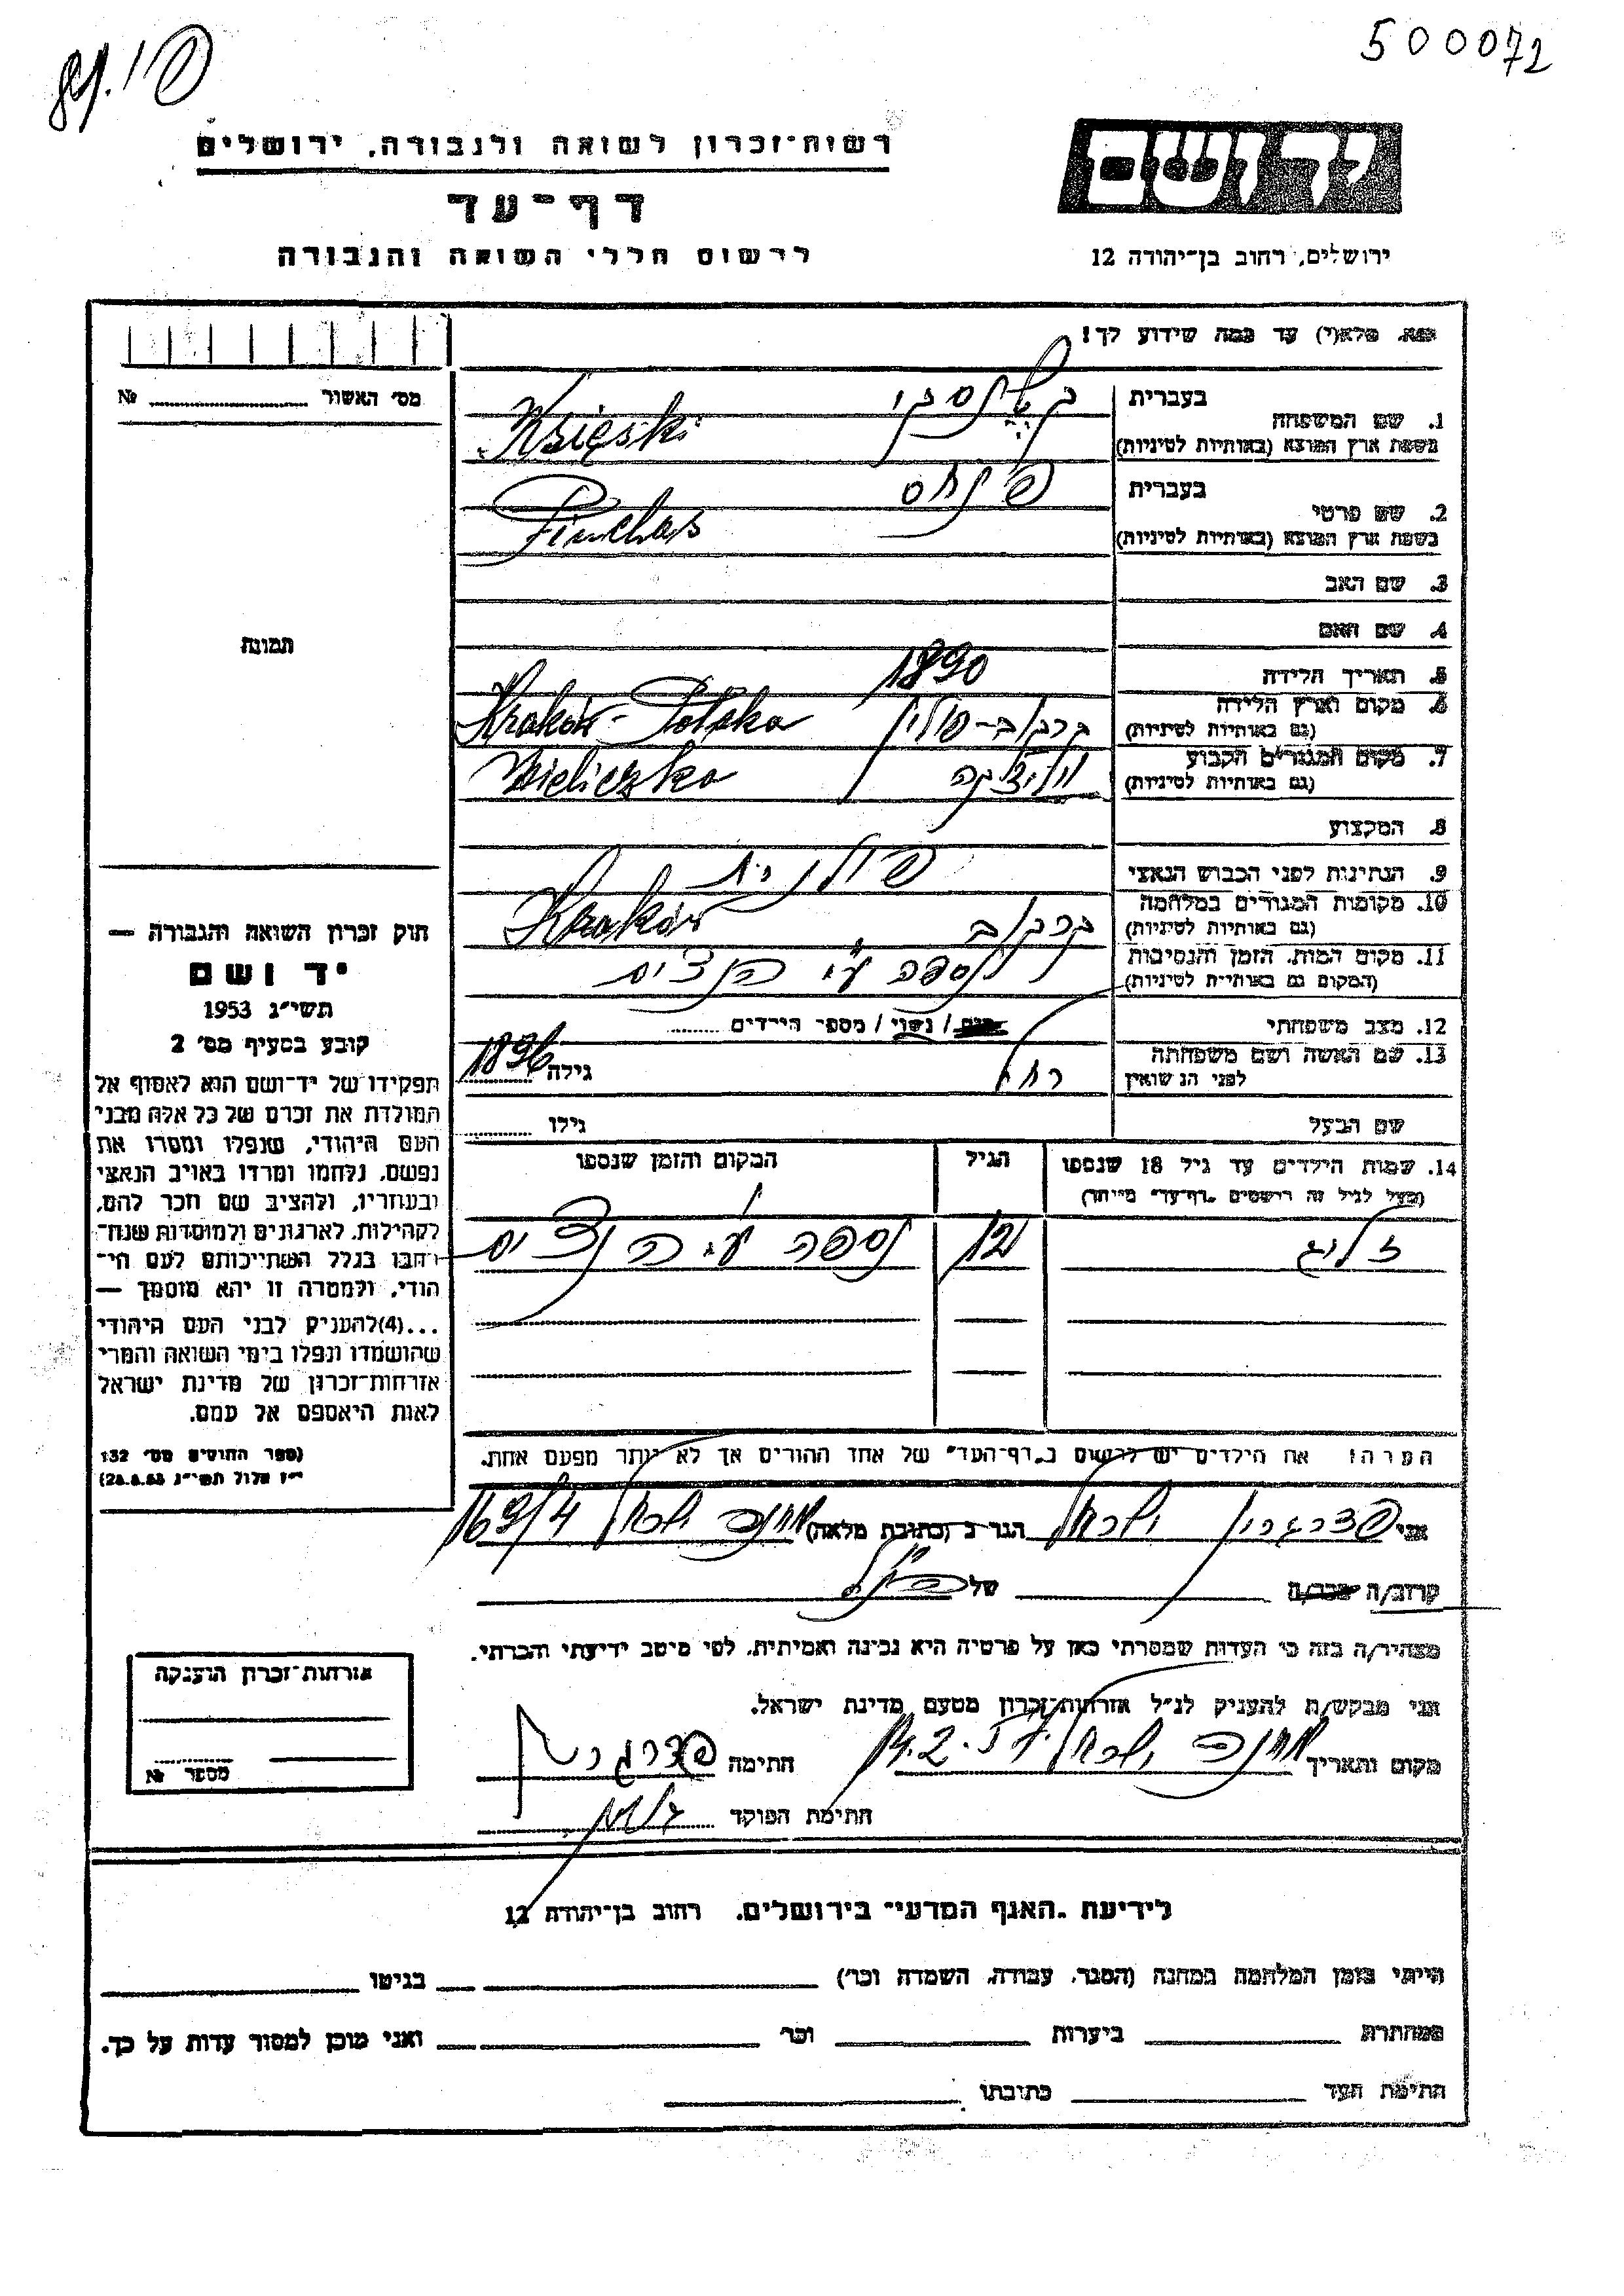 500072
רשות־זכרון לשואה ולגבורה, ירושלים
יד ושם
דף־עד
לרשום חללי השואה והגבורה
ירושלים, רחוב בן־יהודה 12
נא מלא(י) עד כמה שידוע לך!
מס׳ האשור № 
1. שם המשפחה
בעברית
בשפת ארץ המוצא (באותיות לטיניות)
Księski
2. שם פרטי
בעברית פינחס
בשפת ארץ המוצא (באותיות לטיניות)
Pinchas
3. שם האב
4. שם האם
תמונה
5. תאריך הלידה 1890
6. מקום וארץ הלידה
(גם באותיות לטיניות) קרקוב-פולין Kraków-Polska
7. מקום המגורים הקבוע
(גם באותיות לטיניות) ויליצקה Wieliczka
8. המקצוע
9. הנתינות לפני הכבוש הנאצי פולנית
10. מקומות המגורים במלחמה
(גם באותיות לטיניות) קרקוב Kraków
11. מקום המות, הזמן והנסיבות
(המקום גם באותיות לטיניות) נספה ע״י הנצים
12. מצב משפחתי / נשוי / מספר הילדים
13. שם האשה ושם משפחתה
לפני הנשואין רחל גילה 1896
שם הבעל גילו
14. שמות הילדים עד גיל 18 שנספו
(מעל לגיל זה רושמים „דף־עד״ מיוחד)
הגיל
המקום והזמן שנספו
זליג 12 נספה ע״י הנצים
חוק זכרון השואה והגבורה —
יד ושם
תשי״ג 1953
קובע בסעיף מס׳ 2
תפקידו של יד־ושם הוא לאסוף אל
המולדת את זכרם של כל אלה מבני
העם היהודי, שנפלו ומסרו את
נפשם, נלחמו ומרדו באויב הנאצי
ובעוזריו, ולהציב שם וזכר להם,
לקהילות, לארגונים ולמוסדות שנח־
רבו בגלל השתייכותם לעם הי־
הודי, ולמטרה זו יהא מוסמך —
...(4)להעניק לבני העם היהודי
שהושמדו ונפלו בימי השואה והמרי
אזרחות־זכרון של מדינת ישראל
לאות היאספם אל עמם.
(ספר החוקים מס׳ 132
י״ז אלול תשי״ג 28.8.53)
הערה: את הילדים יש לרשום ב„דף־העד״ של אחד ההורים אך לא יותר מפעם אחת.
אני פדרגרין ישראל הגר ב (כתובת מלאה) 169/4
קרוב/ה של
מצהיר/ה בזה כי העדות שמסרתי כאן על פרטיה היא נכונה ואמיתית, לפי מיטב ידיעתי והכרתי.
אני מבקש/ת להעניק לנ״ל אזרחות־זכרון מטעם מדינת ישראל.
מקום ותאריך חתימה
חתימת הפוקד
אזרחות־זכרון הוענקה
מספר №
לידיעת „האגף המדעי״ בירושלים, רחוב בן־יהודה 12
הייתי בזמן המלחמה במחנה (הסגר, עבודה, השמדה וכו׳) בגיטו
במחתרת ביערות וכו׳ ואני מוכן למסור עדות על כך.
חתימת העד כתובתו